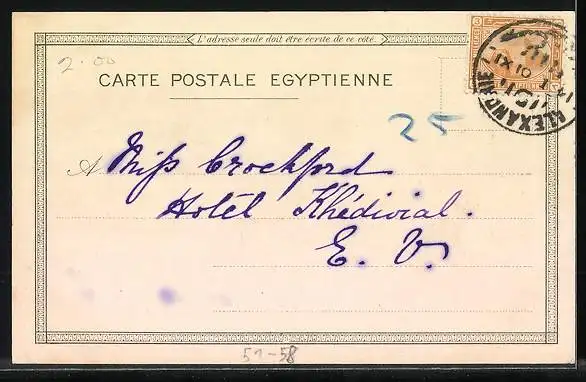 L'adresse seule doit être écrite de ce côté.
2.00
CARTE POSTALE EGYPTIENNE
ALEXANDRIE
25
A Miss Crockford
Hotel Khédivial.
E. V.
51-58